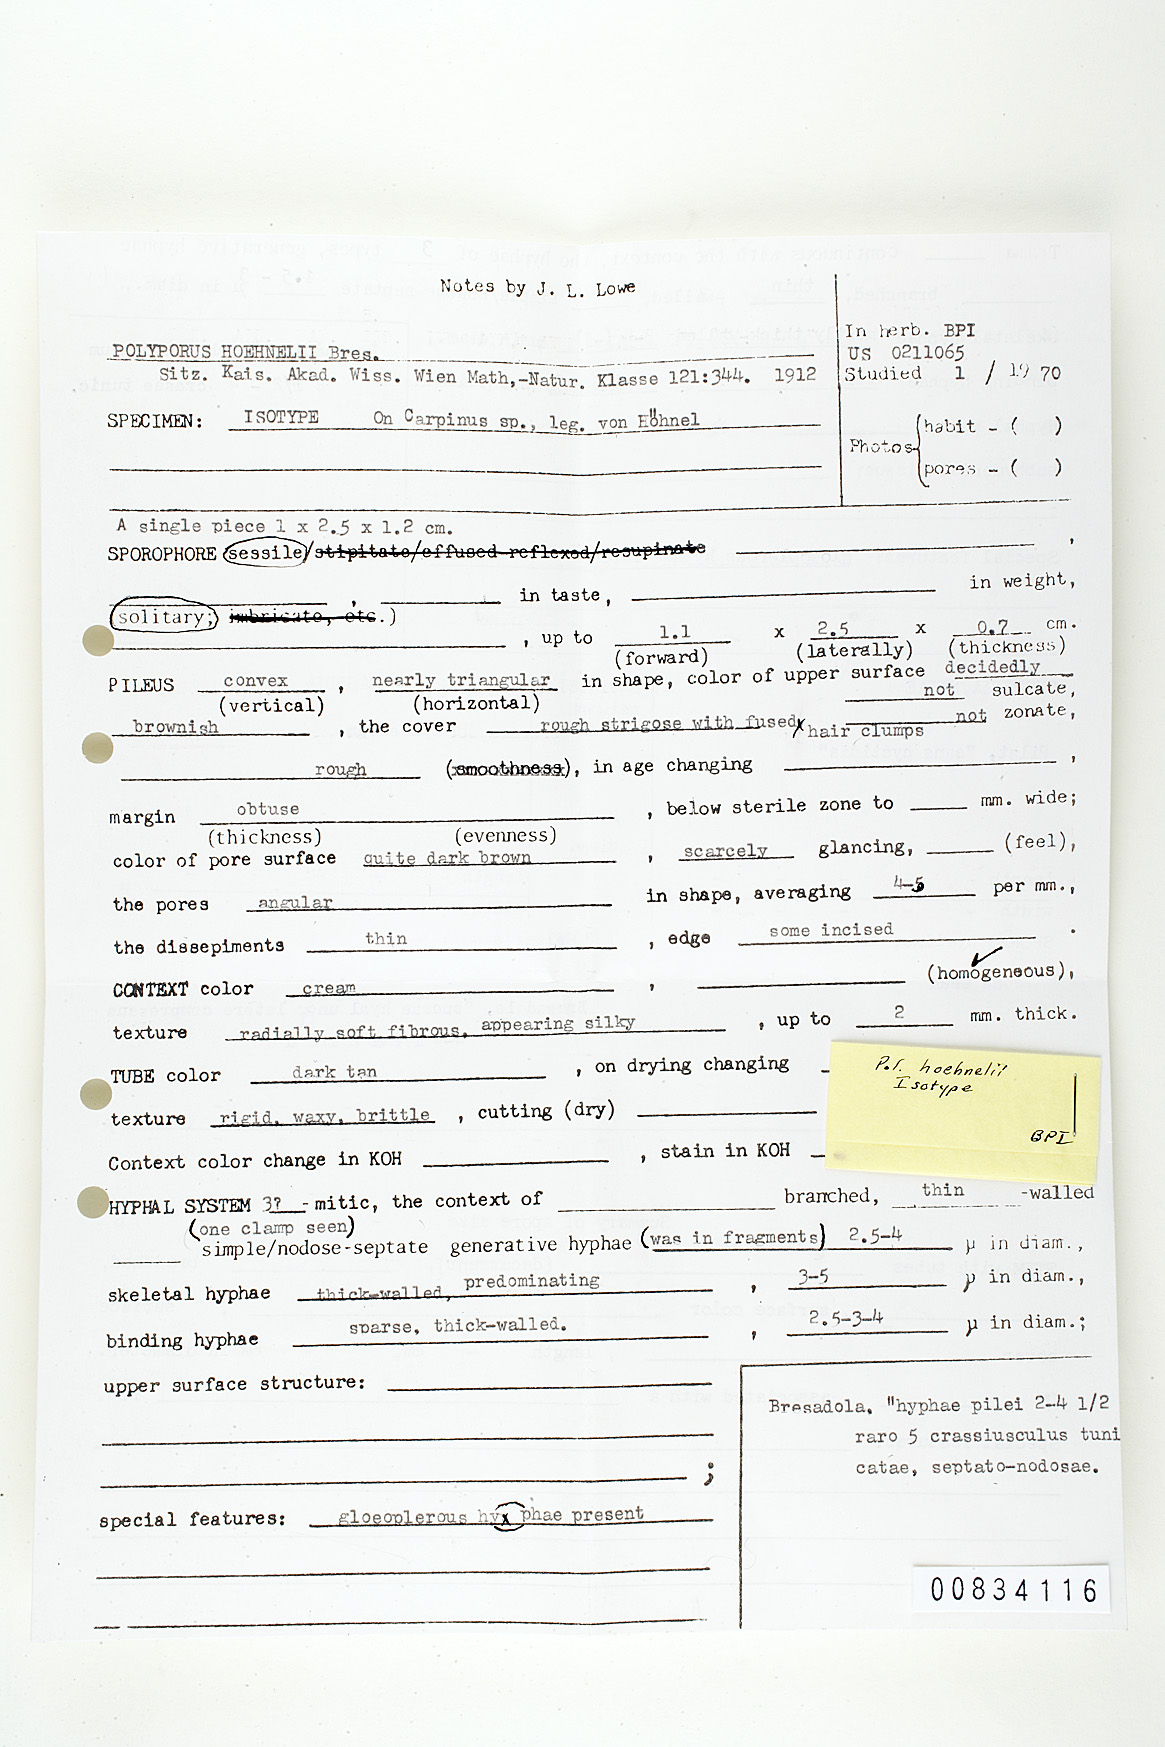 Notes by J. L. Lowe
In herb. BPI
US 0211065
Studied 1 / 19 70
POLYPORUS HOEHNELII Bres.
Sitz. Kais. Akad. Wiss. Wien Math,-Natur. Klasse 121:344. 1912
SPECIMEN: ISOTYPE On Carpinus sp., leg. von Höhnel
Photos
habit - ( )
pores - ( )
A single piece 1 x 2.5 x 1.2 cm.
SPOROPHORE (sessile/stipitate/effused-reflexed/resupinate ,
, in taste, in weight,
(solitary; imbricate, etc.)
, up to 1.1 x 2.5 x 0.7 cm.
(forward) (laterally) (thickness)
PILEUS convex , nearly triangular in shape, color of upper surface decidedly
(vertical) (horizontal) not sulcate,
brownish , the cover rough strigose with fused hair clumps not zonate,
rough (smoothness), in age changing ,
margin obtuse , below sterile zone to mm. wide;
(thickness) (evenness)
color of pore surface quite dark brown , scarcely glancing, (feel),
the pores angular in shape, averaging 4-5 per mm.,
the dissepiments thin , edge some incised .
CONTEXT color cream , (homogeneous),
texture radially soft fibrous, appearing silky , up to 2 mm. thick.
TUBE color dark tan , on drying changing
texture rigid, waxy, brittle , cutting (dry)
Context color change in KOH , stain in KOH
Pol. hoehnelii
Isotype
BPI
HYPHAL SYSTEM 3? -mitic, the context of branched, thin -walled
(one clamp seen)
simple/nodose-septate generative hyphae (was in fragments) 2.5-4 µ in diam.,
skeletal hyphae thick-walled, predominating , 3-5 µ in diam.,
binding hyphae sparse, thick-walled. , 2.5-3-4 µ in diam.;
upper surface structure:
;
Bresadola. "hyphae pilei 2-4 1/2
raro 5 crassiusculus tuni
catae, septato-nodosae.
special features: gloeoplerous hyphae present
00834116